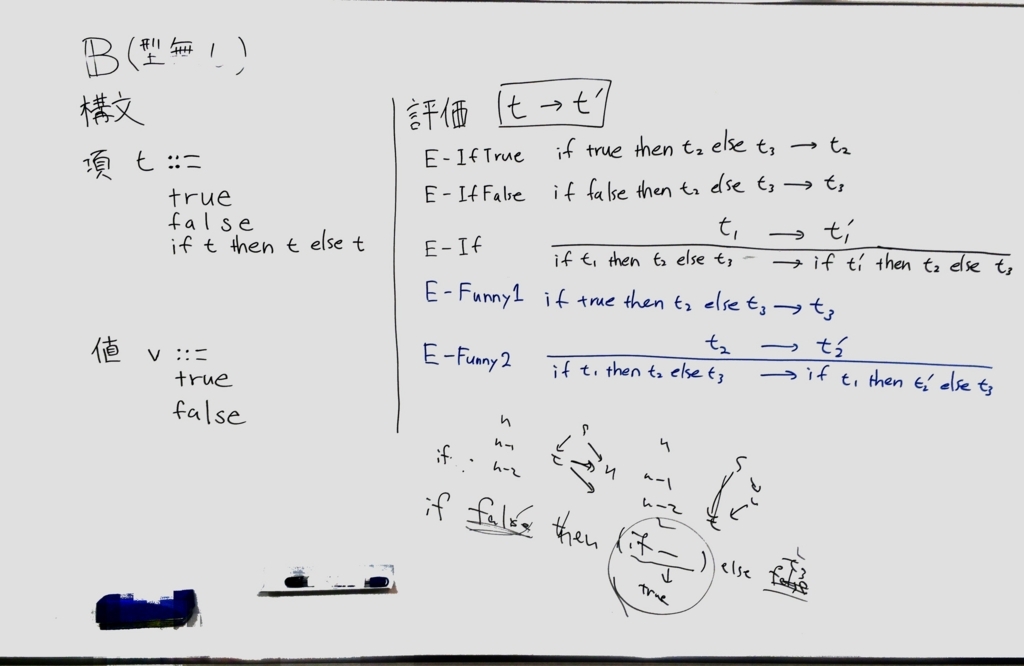 B (型無し)
構文
項 t ::=
true
false
if t then t else t
値 v ::=
true
false
評価 t → t′
E-IfTrue if true then t₂ else t₃ → t₂
E-IfFalse if false then t₂ else t₃ → t₃
E-If t₁ → t₁′
if t₁ then t₂ else t₃ → if t₁′ then t₂ else t₃
E-Funny1 if true then t₂ else t₃ → t₃
E-Funny2 t₂ → t₂′
if t₁ then t₂ else t₃ → if t₁ then t₂′ else t₃
n
n-1
if n-2
n
n-1
n-2
if false then (if ) else
true